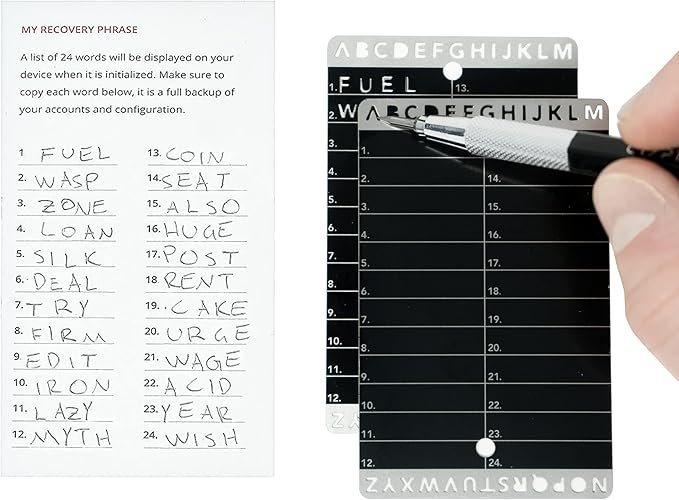 MY RECOVERY PHRASE
A list of 24 words will be displayed on your
device when it is initialized. Make sure to
copy each word below, it is a full backup of
your accounts and configuration.
1 FUEL
2. WASP
3. ZONE
4. LOAN
5. SILK
6. DEAL
7. TRY
8. FIRM
9. EDIT
10. IRON
11. LAZY
12. MYTH
13. COIN
14. SEAT
15. ALSO
16. HUGE
17. POST
18 RENT
19. CAKE
20. URGE
21. WAGE
22. ACID
23. YEAR
24. WISH
ABCDEFGHIJKLM
1. FUEL 13.
2. W
3.
4.
5.
6.
7.
8.
9.
10.
11.
12.
ABCDEFGHIJKLM
1.
2. 14.
3. 15.
4. 16.
5. 17.
6. 18.
7. 19.
8. 20.
9. 21.
10. 22.
11. 23.
12. 24.
NOPQRSTUVWXYZ